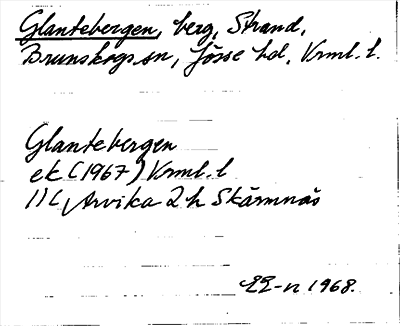 Glantebergen, berg, Strand,
Brunskogs sn, Jösse hd, Vrml. l.
Glantebergen
ek (1967) Vrml. l
11C Arvika 2 h Skärmnäs
1968.